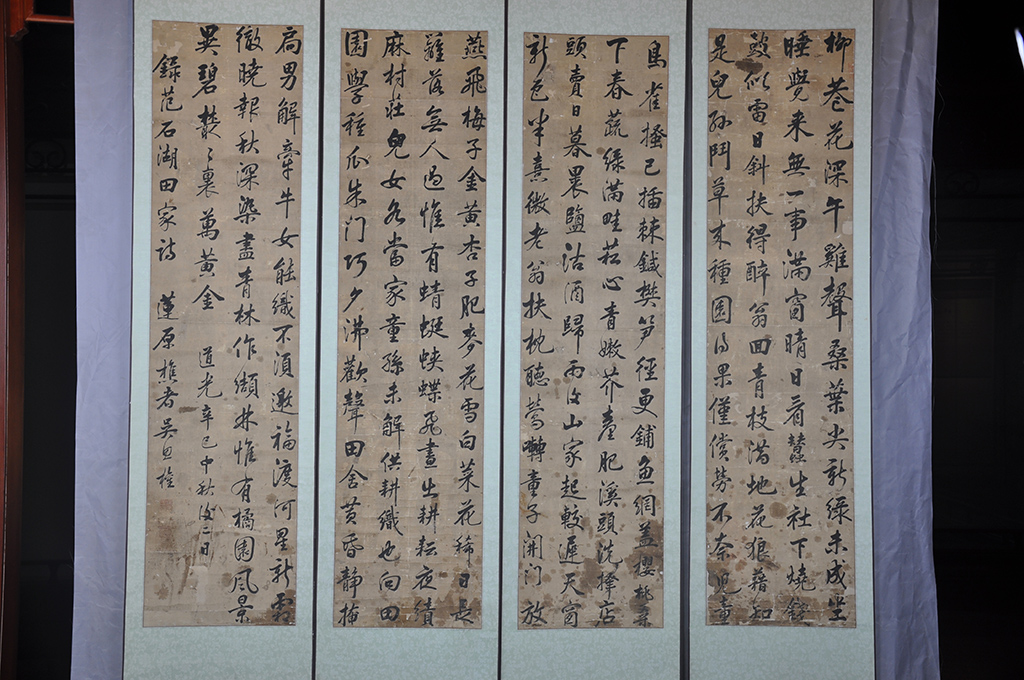 柳巷花深午雞聲桑葉尖新綠未成坐
睡覺來無一事滿窗晴日看蠶生社下燒錢
鼓似雷日斜扶得醉翁回青枝滿地花狼藉知
是兒孫鬥草來種園得果僅償勞不奈兒童
鳥雀搔已插棘鍼樊笋徑更鋪魚網蓋櫻桃桑
下春蔬綠滿畦菘心青嫩芥薹肥溪頭洗擇店
頭賣日暮裹鹽沽酒歸雨後山家起較遲天窗
新色半熹微老翁扶枕聽鶯囀童子開門放
燕飛梅子金黃杏子肥麥花雪白菜花稀日長
籬落無人過惟有蜻蜓蛺蝶飛晝出耕耘夜績
麻村莊兒女各當家童孫未解供耕織也向田
園學種瓜朱门巧夕沸歡聲田舍黃昏靜掩
扃男解牽牛女能織不須邀福渡河星新霜
徹曉報秋深染盡青林作纈林惟有橘園風景
異碧叢々裏萬黃金 道光辛巳中秋後二日
錄范石湖田家詩 蓮原樵者吳